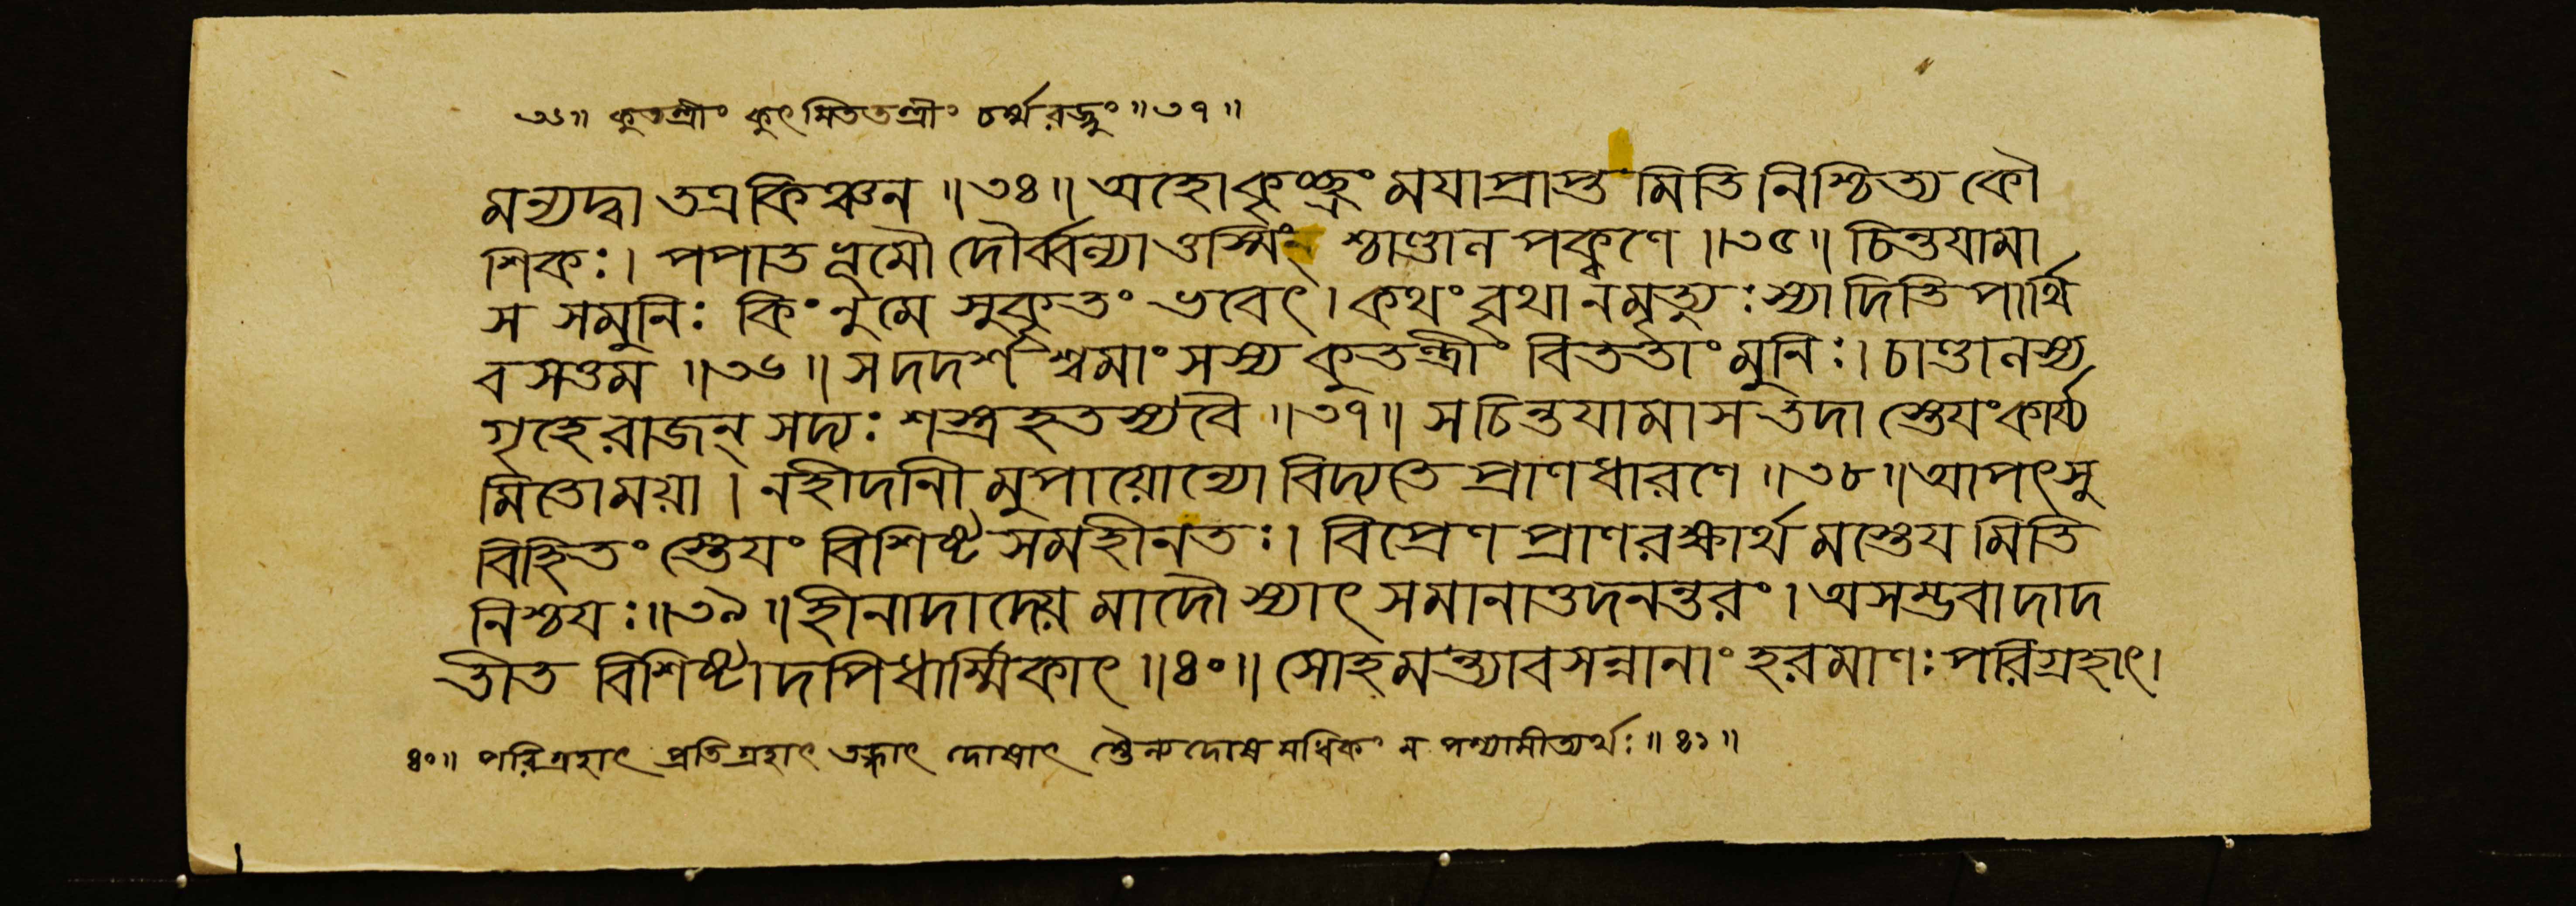 ৩৬॥ কুতন্ত্রীং কুৎসিততন্ত্রীং চর্ম্মরজ্জুং ॥৩৭॥
মন্যদ্বা তত্র কিঞ্চন ॥৩৪॥ অহো কৃচ্ছ্রং ময়া প্রাপ্তমিতি নিশ্চিত্য কৌ
শিকঃ। পপাত ভূমৌ দৌর্ব্বল্যাত্তস্মিংশ্চাণ্ডালপক্কণে ॥৩৫॥ চিন্তয়ামা
স স মুনিঃ কিং নু মে সুকৃতং ভবেৎ। কথং বৃথা ন মৃত্যুঃ স্যাদিতি পার্থি
বসত্তম ॥৩৬॥ স দদর্শ শ্বমাংসস্য কুতন্ত্রীং বিততাং মুনিঃ। চাণ্ডালস্য
গৃহে রাজন্ সদ্যঃ শস্ত্রহতস্য বৈ ॥৩৭॥ স চিন্তয়ামাস তদা স্তেয়ং কার্য্য
মিতো ময়া। ন হীদানীমুপায়োন্যো বিদ্যতে প্রাণধারণে ॥৩৮॥ আপৎসু
বিহিতং স্তেয়ং বিশিষ্টসমহীনতঃ। বিপ্রেণ প্রাণরক্ষার্থমস্তেয়মিতি
নিশ্চয়ঃ ॥৩৯॥ হীনাদাদেয়মাদৌ স্যাৎ সমানাত্তদনন্তরং। অসম্ভবাদাদ
দীত বিশিষ্টাদপি ধার্ম্মিকাৎ ॥৪০॥ সোহমন্ত্যাবসন্নানাং হরমাণঃ পরিগ্রহাৎ।
৪০॥ পরিগ্রহাৎ প্রতিগ্রহাৎ তস্মাৎ দোষাৎ স্তৈন্যদোষমধিকং ন পশ্যামীত্যর্থঃ ॥৪১॥